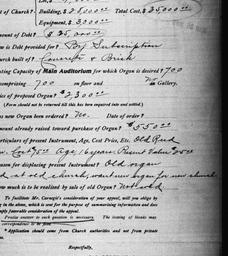 of Church? Building, $28000.00 Total Cost, $35000.00
Equipment, $3000.00
mount of Debt? $25,000.00
w is Debt provided for? By Subscription
hurch built of? Concrete & Brick
ating Capacity of Main Auditorium for which Organ is desired? 700
comprising 700 on floor and No in Gallery.
rice of proposed Organ? $2300.00
(Form should not be returned till this has been inquired into and settled.)
s new Organ been Ordered? No. Date of order?
mount already raised toward purchase of Organ? $550.00
articulars of present Instrument, Age, Cost Price, Etc. Old Reed
Cost $75.00 Age 16 years. Present Value $25.00
ason for displacing present Instrument? Old organ
at old church, want new organ for new church
ow much is to be realized by sale of old Organ? Not sold
To facilitate Mr. Carnegie's consideration of your appeal, will you oblige by
ing in the above, which is sent for the purpose of summarizing information and does
imply favorable consideration of the appeal.
Precise answer to each question is necessary. The issuing of blanks may
correspondence to be
* Application should come from Church authorities and not from private
Respectfully,